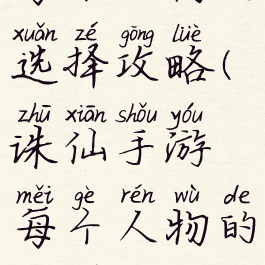 xuǎn zé gōng lüè
选择攻略(
zhū xiān shǒu yóu
诛仙手游
měi gè rén wù de
每个人物的